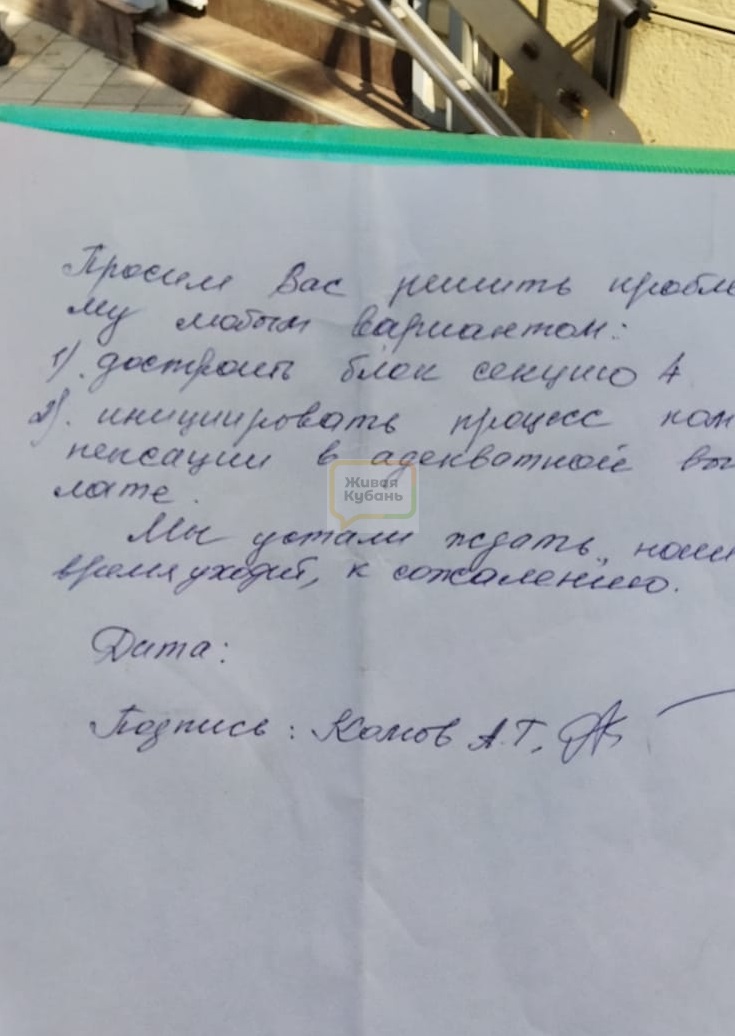 Просим Вас решить пробле
му любым вариантом:
1). достроить блок секцию 4
2). инициировать процесс ком
пенсации в адекватной вып
лате.
Живая
Кубань
Мы устали ждать, наше
время уходит, к сожалению.
Дата:
Подпись: Комов А.Г.